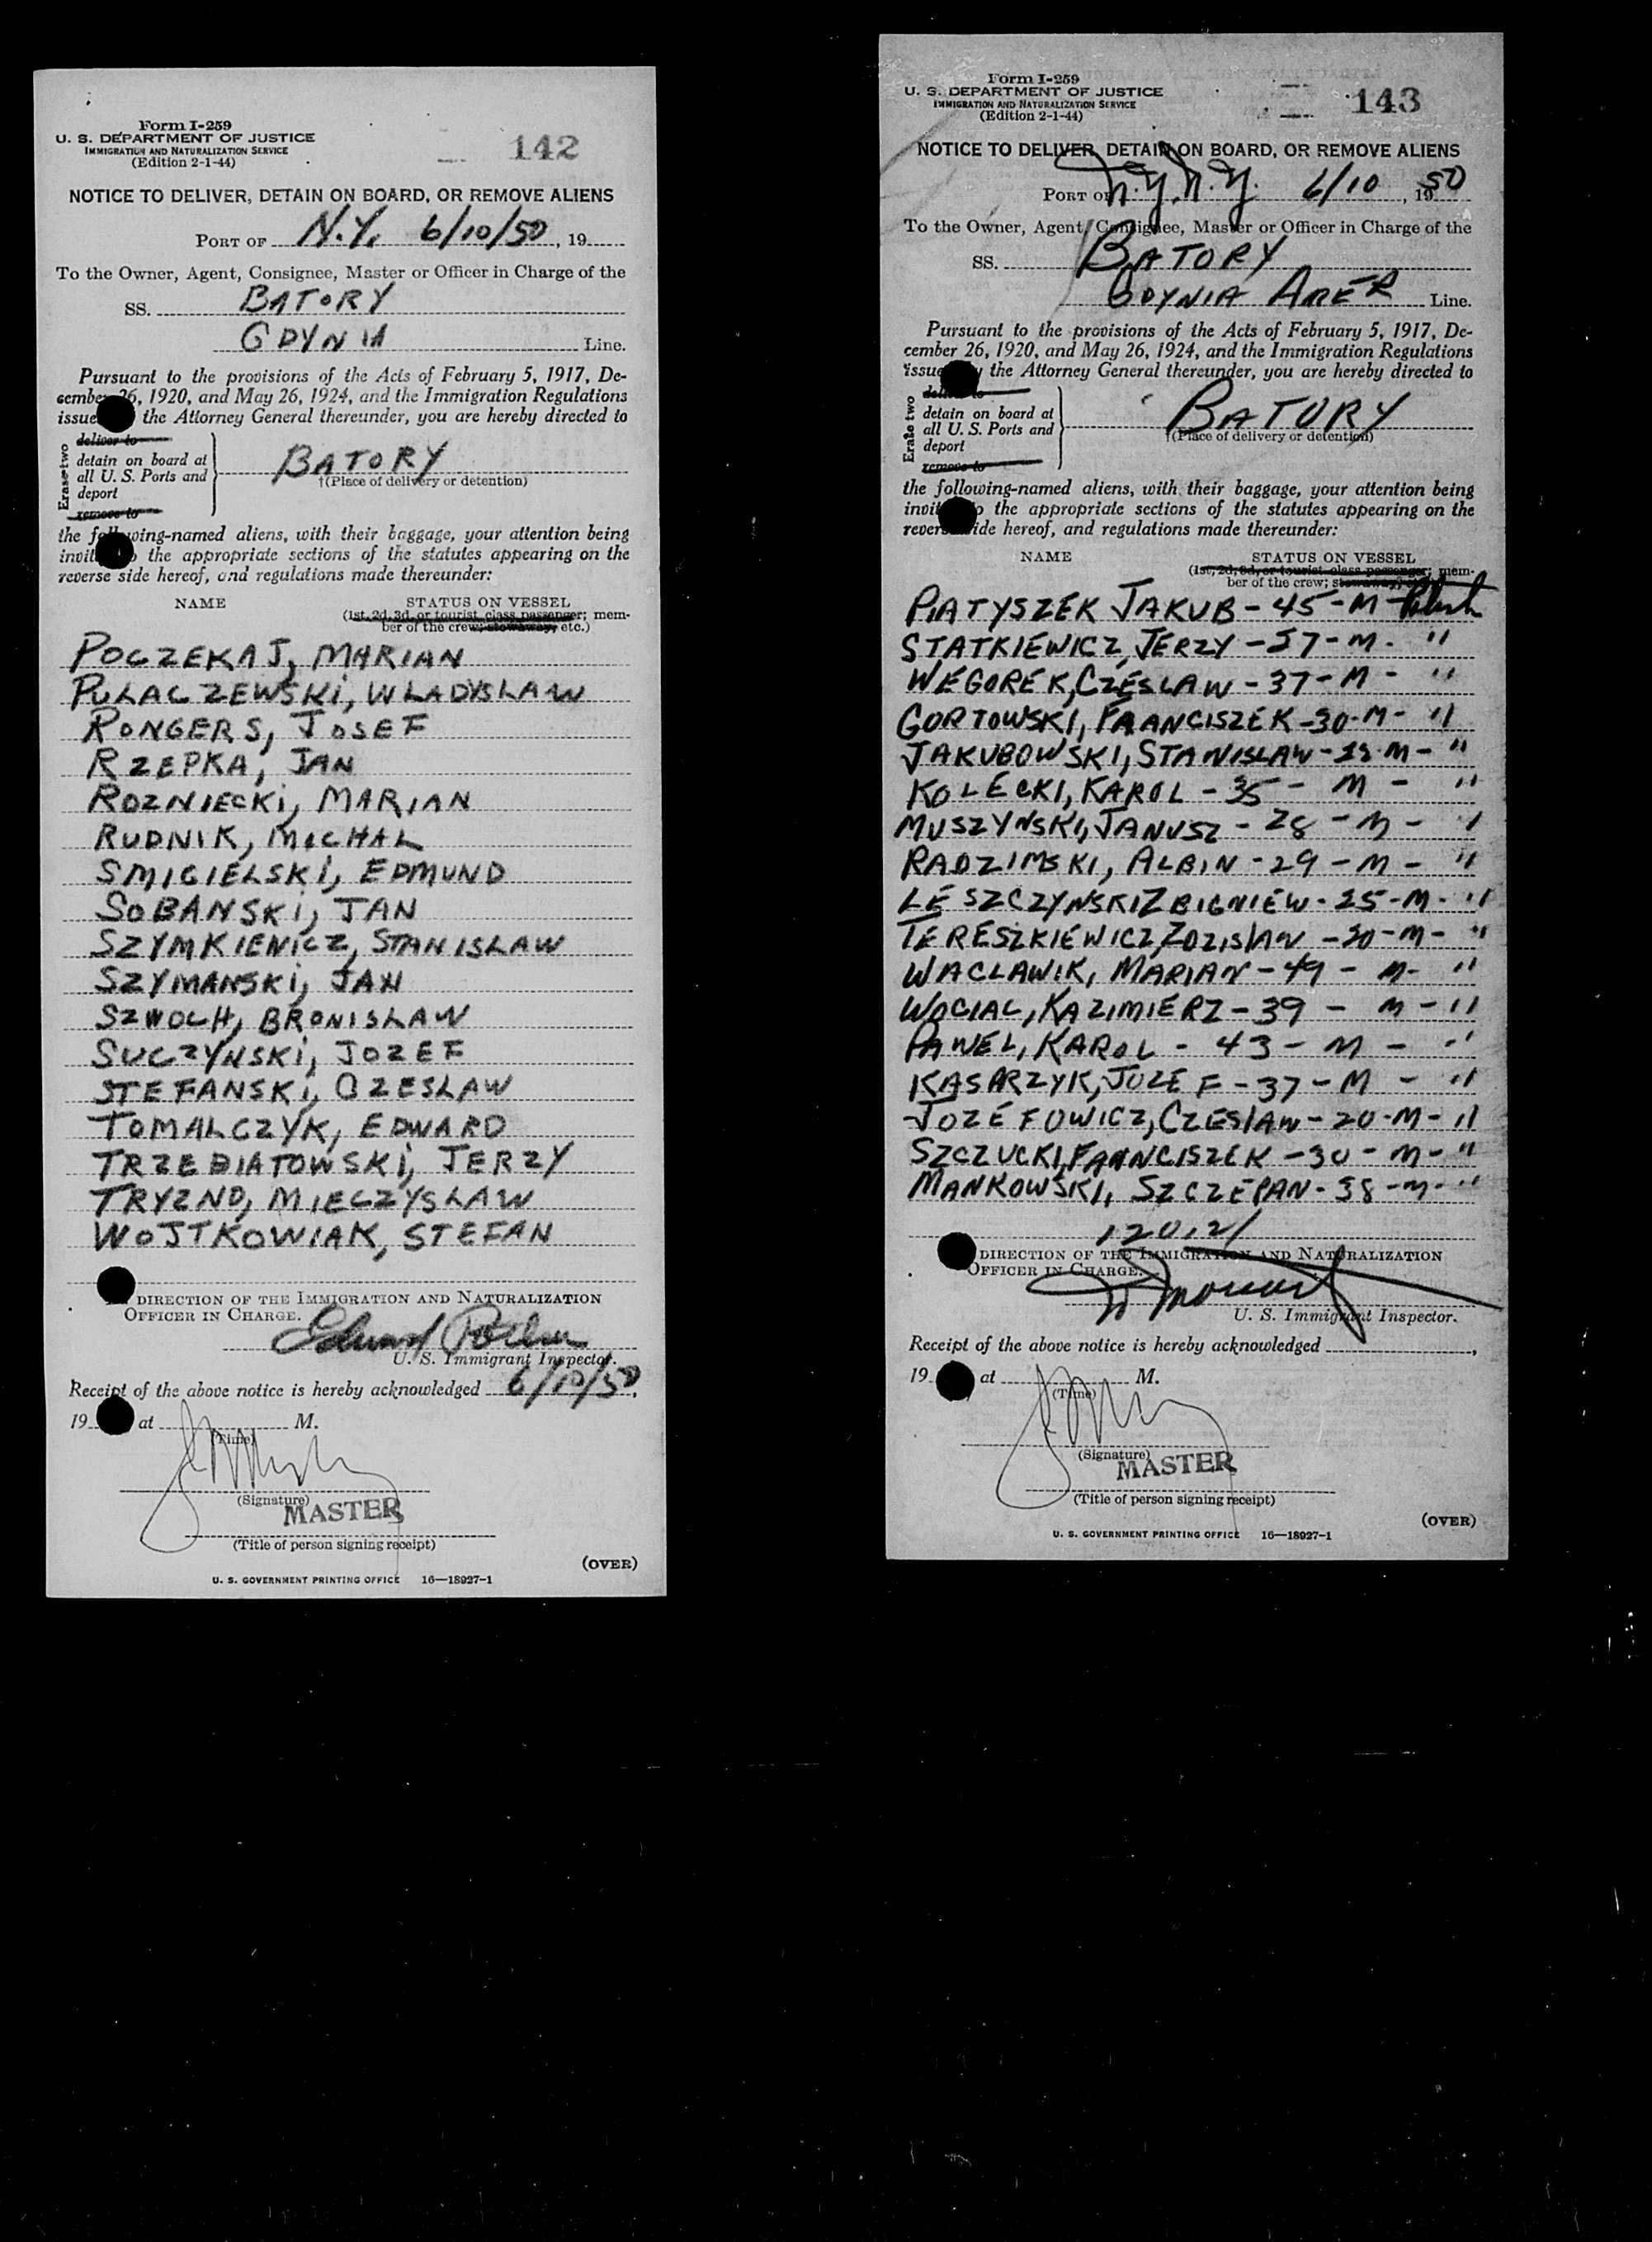 Form I-259
U. S. DEPARTMENT OF JUSTICE
IMMIGRATION AND NATURALIZATION SERVICE
(Edition 2-1-44)
142
NOTICE TO DELIVER, DETAIN ON BOARD, OR REMOVE ALIENS
PORT OF N.Y. 6/10/50, 19
To the Owner, Agent, Consignee, Master or Officer in Charge of the
SS. BATORY
GDYNIA Line.
Pursuant to the provisions of the Acts of February 5, 1917, De-
cember 26, 1920, and May 26, 1924, and the Immigration Regulations
issue the Attorney General thereunder, you are hereby directed to
Erase two
deliver to
detain on board at
all U. S. Ports and
deport
remove to
BATORY
†(Place of delivery or detention)
the following-named aliens, with their baggage, your attention being
invit the appropriate sections of the statutes appearing on the
reverse side hereof, and regulations made thereunder:
NAME STATUS ON VESSEL
(1st, 2d, 3d, or tourist class passenger; mem-
ber of the crew; stowaway, etc.)
POCZEKAJ, MARIAN
PULACZEWSKI, WLADYSLAW
RONGERS, JOSEF
RZEPKA, JAN
ROZNIECKI, MARIAN
RUDNIK, MICHAL
SMIGIELSKI, EDMUND
SOBANSKI, JAN
SZYMKIENICZ, STANISLAW
SZYMANSKI, JAN
SZWOCH, BRONISLAW
SUCZYNSKI, JOZEF
STEFANSKI, CZESLAW
TOMALCZYK, EDWARD
TRZEBIATOWSKI, JERZY
TRYZNO, MIECZYSLAW
WOJTKOWIAK, STEFAN
DIRECTION OF THE IMMIGRATION AND NATURALIZATION
OFFICER IN CHARGE.
Edward
U. S. Immigrant Inspector.
Receipt of the above notice is hereby acknowledged 6/10/50,
19 at M.
(Time)
(Signature)
MASTER
(Title of person signing receipt)
(OVER)
U. S. GOVERNMENT PRINTING OFFICE 16—18927-1
Form I-259
U. S. DEPARTMENT OF JUSTICE
IMMIGRATION AND NATURALIZATION SERVICE
(Edition 2-1-44)
143
NOTICE TO DELIVER, DETAIN ON BOARD, OR REMOVE ALIENS
PORT OF N.Y. N.Y. 6/10, 1950
To the Owner, Agent, Consignee, Master or Officer in Charge of the
SS. BATORY
GDYNIA AMER Line.
Pursuant to the provisions of the Acts of February 5, 1917, De-
cember 26, 1920, and May 26, 1924, and the Immigration Regulations
issue y the Attorney General thereunder, you are hereby directed to
Erase two
deliver to
detain on board at
all U. S. Ports and
deport
remove to
BATORY
†(Place of delivery or detention)
the following-named aliens, with their baggage, your attention being
invit o the appropriate sections of the statutes appearing on the
reverse side hereof, and regulations made thereunder:
NAME STATUS ON VESSEL
(1st, 2d, 3d, or tourist class passenger; mem-
ber of the crew; stowaway, etc.)
PIATYSZEK JAKUB - 45 - M - Polish
STATKIEWICZ, JERZY - 37 - M. "
WEGOREK, CZESLAW - 37 - M - "
GORTOWSKI, FRANCISZEK - 30 - M - "
JAKUBOWSKI, STANISLAW - M - "
KOLECKI, KAROL - 35 - M - "
MUSZYNSKI, JANUSZ - 28 - M - "
RADZIMSKI, ALBIN - 29 - M - "
LESZCZYNSKI ZBIGNIEW - 25 - M - "
TERESZKIEWICZ, ZDZISLAW - 30 - M - "
WACLAWIK, MARIAN - 49 - M - "
WOCIAL, KAZIMIERZ - 39 - M - "
PAWEL, KAROL - 43 - M - "
KASARZYK, JOZEF - 37 - M - "
JOZEFOWICZ, CZESLAW - 20 - M - "
SZCZUCKI, FRANCISZEK - 30 - M - "
MANKOWSKI, SZCZEPAN - 38 - M - "
DIRECTION OF THE IMMIGRATION AND NATURALIZATION
OFFICER IN CHARGE.
U. S. Immigrant Inspector.
Receipt of the above notice is hereby acknowledged ,
19 at M.
(Time)
(Signature)
MASTER
(Title of person signing receipt)
(OVER)
U. S. GOVERNMENT PRINTING OFFICE 16—18927-1